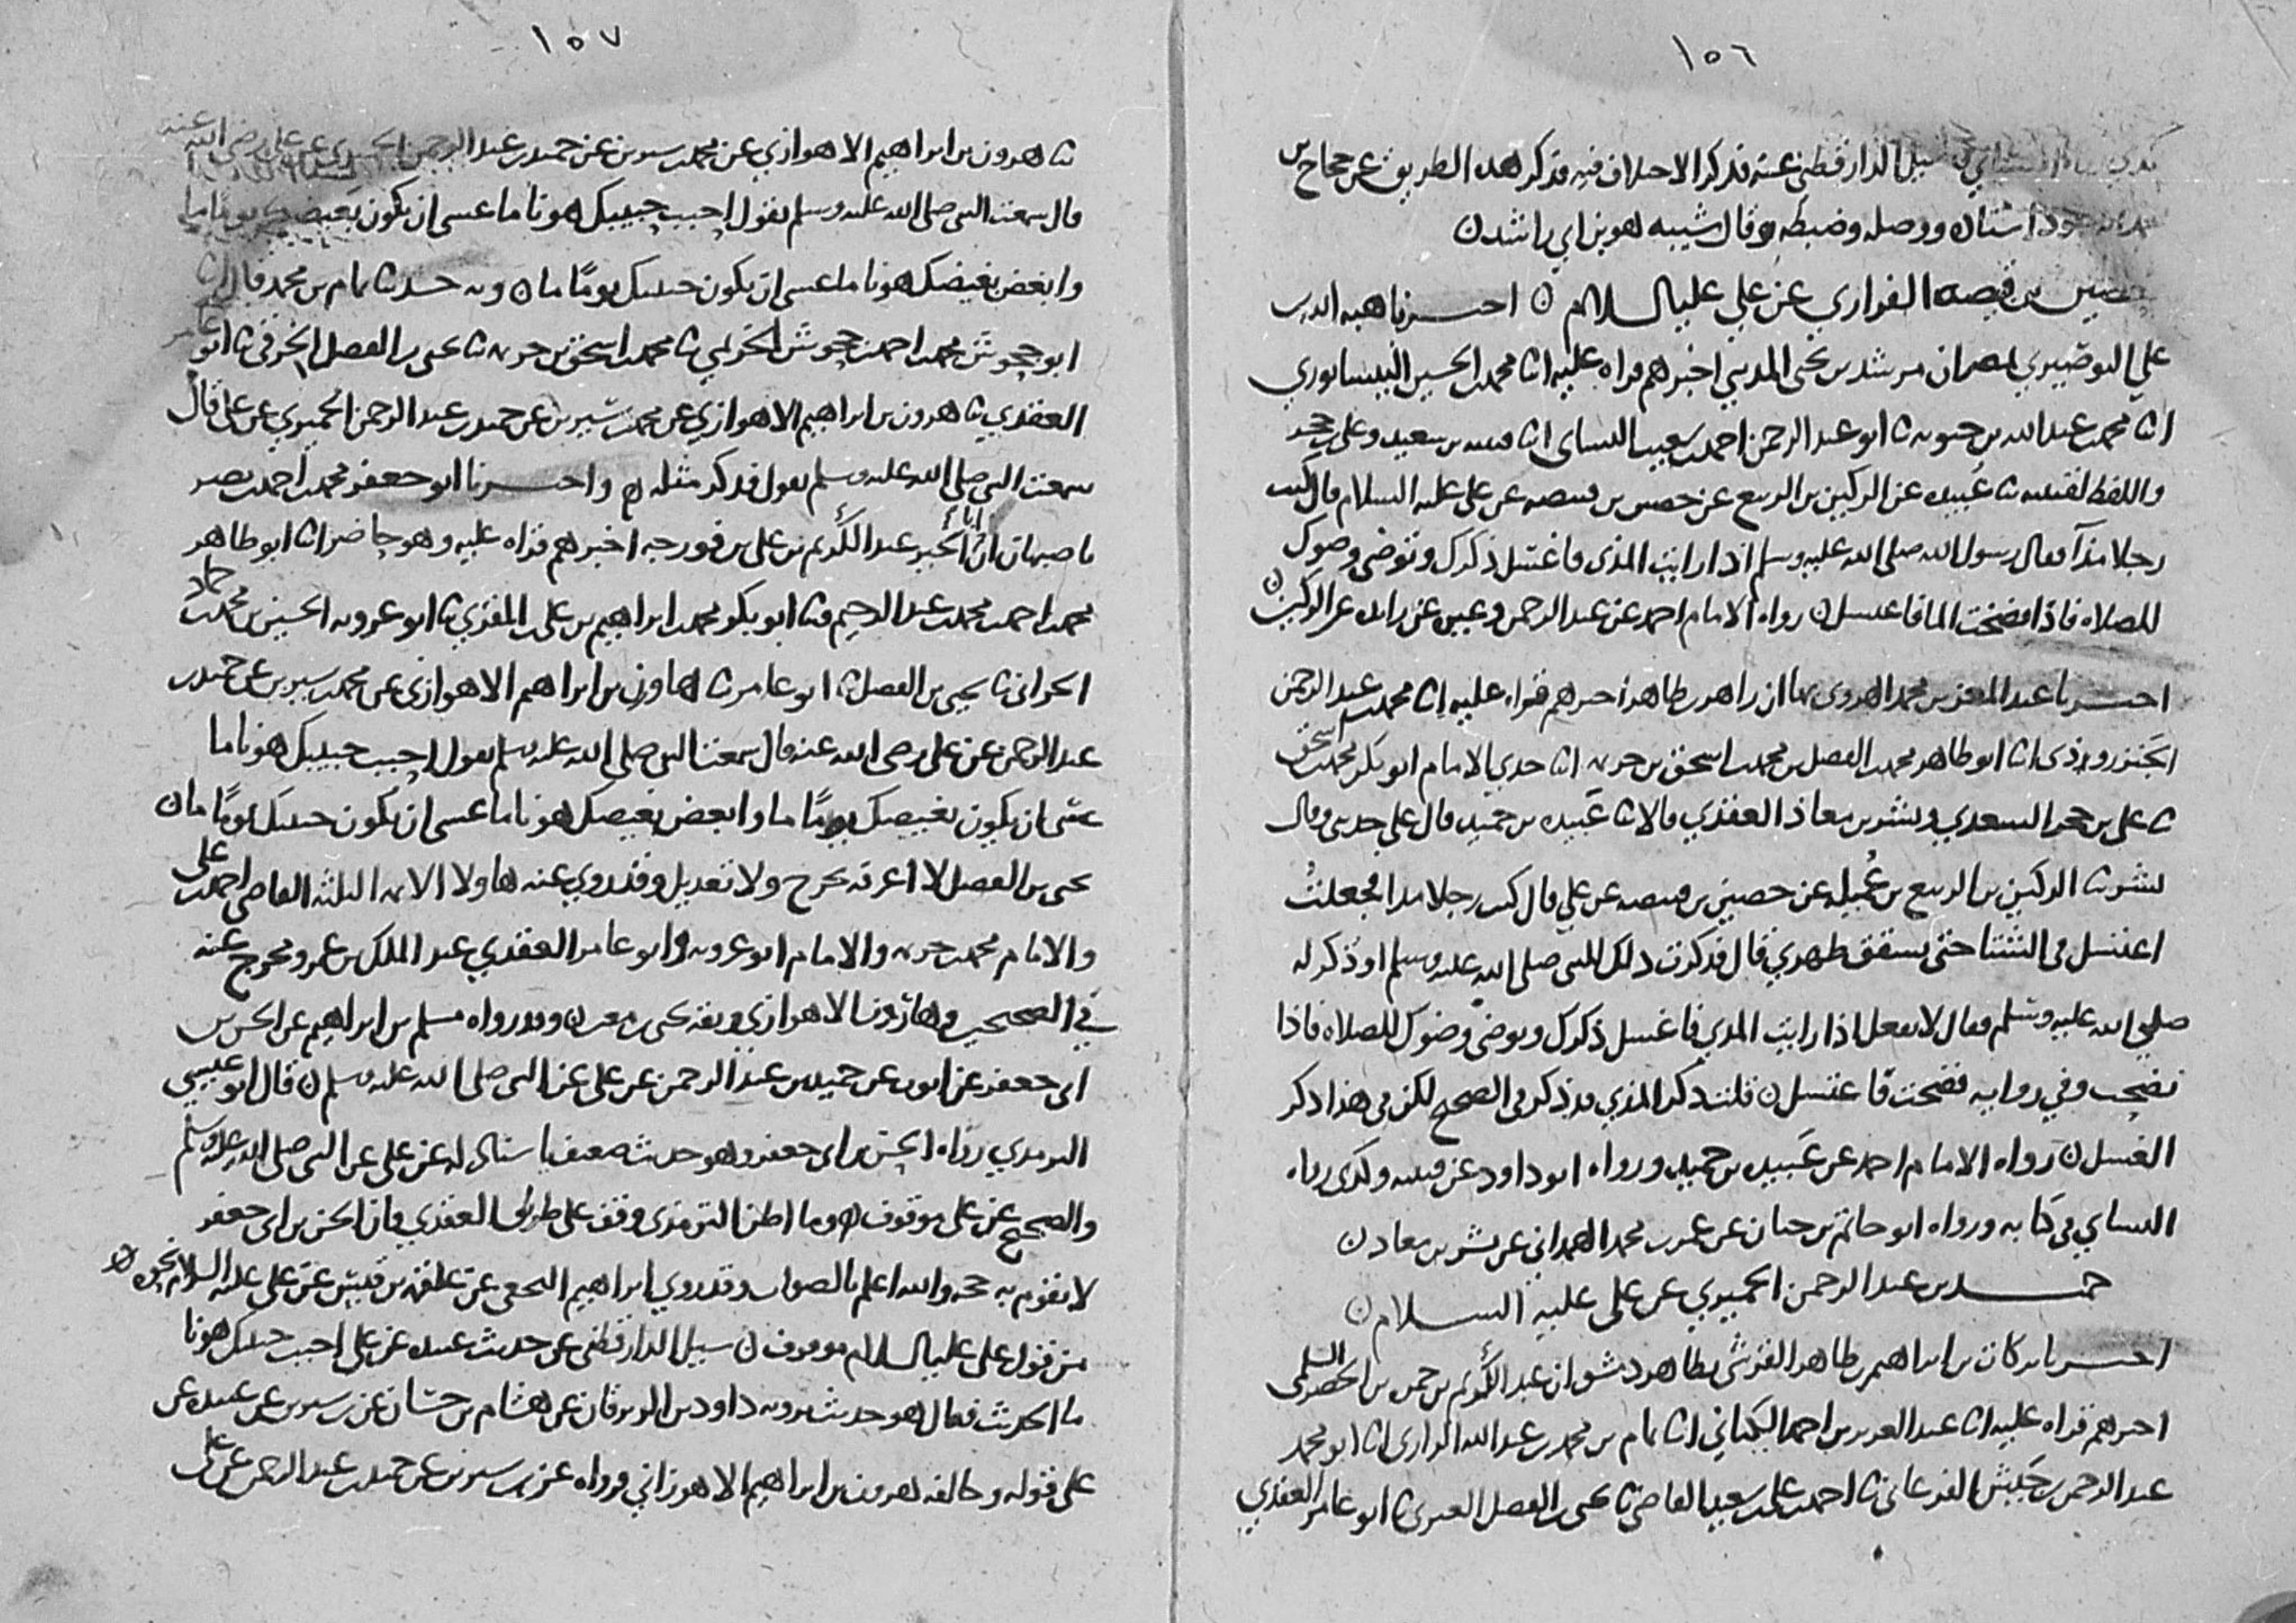 ١٥٦
سئل الدارقطني عنه فذكر الاختلاف فيه فذكر هذه الطريق عن حجاج بن
وقال شيبه هو بن ابي راشد ن
حصين بن قبيصه الفزاري عن علي عليه السلام ن اخبرنا هبة الله بن
علي البوصيري بمصر ان مرشد بن يحيى المديني اخبرهم قراه عليه انا محمد بن الحسين النيسابوري
انا محمد بن عبد الله بن حيويه نا ابو عبد الرحمن احمد بن شعيب النساي انا قتيبه بن سعيد وعلي بن حجر
واللفظ لقتيبه نا عبيده عن الركين بن الربيع عن حصين بن قبيصه عن علي عليه السلام قال كنت
رجلا مذآ فقال رسول الله صلى الله عليه وسلم اذا رايت المذى فاغسل ذكرك وتوضى وضوك
للصلاه فاذا فضخت الما فاغتسل ن رواه الامام احمد عن عبد الرحمن وعبيده عن زايده عن الركين ن
اخبرنا عبد المعز بن محمد الهروي بها ان زاهر بن طاهر اخبرهم قراه عليه انا محمد بن عبد الرحمن
الجنزروذى انا ابو طاهر محمد بن الفضل بن محمد بن اسحق بن خزيمه انا جدي الامام ابو بكر محمد بن اسحق
نا علي بن حجر السعدي وبشر بن معاذ العقدي قالا نا عبيده بن حميد قال علي حدثني وقال
بشر نا الركين بن الربيع بن عميله عن حصين بن قبيصه عن علي قال كنت رجلا مذا فجعلت
اغتسل في الشتا حتى تشقق ظهري قال فذكرت ذلك للنبي صلى الله عليه وسلم او ذكر له
صلى الله عليه وسلم فقال لا تفعل اذا رايت المذي فاغسل ذكرك وتوضى وضوك للصلاه فاذا
نضحت وفي روايه فضخت فاغتسل ن قلت ذكر المذي قد ذكر في الصحيح لكن في هذا ذكر
الغسل ن رواه الامام احمد عن عبيده بن حميد ورواه ابو داود عن قتيبه وكذى رواه
النساي في كتابه ورواه ابو حاتم بن حبان عن عمر بن محمد الهمداني عن بشر بن معاذ ن
حميد بن عبد الرحمن الحميري عن علي عليه السلام ن
اخبرنا بركات بن ابراهيم بن طاهر القرشي بظاهر دمشق ان عبد الكريم بن حمزه بن الخضر السلمي
اخبرهم قراه عليه انا عبد العزيز بن احمد الكتاني انا تمام بن محمد بن عبد الله الرازي انا ابو محمد
عبد الرحمن بن جيش الفرغاني نا احمد بن علي بن سعيد القاضي نا يحيى بن الفضل العنبري نا ابو عامر العقدي
١٥٧
نا هرون بن ابراهيم الاهوازي عن محمد بن سيرين عن حميد بن عبد الرحمن الحميري عن علي رضي الله عنه
قال سمعت النبي صلى الله عليه وسلم يقول احبب حبيبك هونا ما عسى ان يكون بغيضك يوما ما
وابغض بغيضك هونا ما عسى ان يكون حبيبك يوما ما ن وبه حدثنا تمام بن محمد قال نا
ابو جحوش محمد بن احمد بن جحوش الخريمي نا محمد بن اسحق بن خزيمه نا يحيى بن الفضل الخرقي نا ابو عامر
العقدي نا هرون بن ابراهيم الاهوازي عن محمد بن سيرين عن حميد بن عبد الرحمن الحميري عن علي قال
سمعت النبي صلى الله عليه وسلم يقول فذكر مثله ن واخبرنا ابو جعفر محمد بن احمد بن نصر
باصبهان ان ابا الخير عبد الكريم بن علي بن فورجه اخبرهم قراه عليه وهو حاضر انا ابو طاهر
محمد بن احمد بن محمد بن عبد الرحيم نا ابو بكر محمد بن ابراهيم بن علي المقري نا ابو عروبه الحسين بن محمد بن حماد
الحراني نا يحيى بن الفضل نا ابو عامر نا هاون بن ابراهيم الاهوازي عن محمد بن سيرين عن حميد بن
عبد الرحمن عن علي رضي الله عنه قال سمعت النبي صلى الله عليه وسلم يقول احبب حبيبك هونا ما
عسى ان يكون بغيضك يومًا ما وابغض بغيضك هونا ما عسى ان يكون حبيبك يومًا ما ن
يحيى بن الفضل لا اعرفه بجرح ولا تعديل وقد روي عنه هاولا الايمه الثلثه القاضي احمد بن علي
والامام محمد بن خزيمه والامام ابو عروبه وابو عامر العقدي عبد الملك بن عمرو مخرج عنه
في الصحيحين وهارون الاهوازي وثقه يحيى بن معين ن وقد رواه مسلم بن ابراهيم عن الحسن بن
ابى جعفر عن ايوب عن حميد بن عبد الرحمن عن علي عن النبي صلى الله عليه وسلم ن قال ابو عيسى
الترمذي رواه الحسن بن ابي جعفر وهو حديث ضعيف باسناد له عن علي عن النبي صلى الله عليه وسلم
والصحيح عن علي موقوف ن وما اظن الترمذى وقف على طريق العقدي فان الحسن بن ابى جعفر
لا تقوم به حجه والله اعلم بالصواب وقد روي ابراهيم النخعي عن علقمه بن قيس عن علي عليه السلام نحوه ن
من قول علي عليه السلام موقوف ن سيل الدارقطني عن حديث عبيده عن علي احبب حبيبك هونا
ما الحديث فقال هو حديث يرويه داود بن الزبرقان عن هشام بن حسان عن بن سيرين عن عبيده عن
علي قوله وخالفه هرون بن ابراهيم الاهوازي فرواه عن بن سيرين عن حميد بن عبد الرحمن عن علي